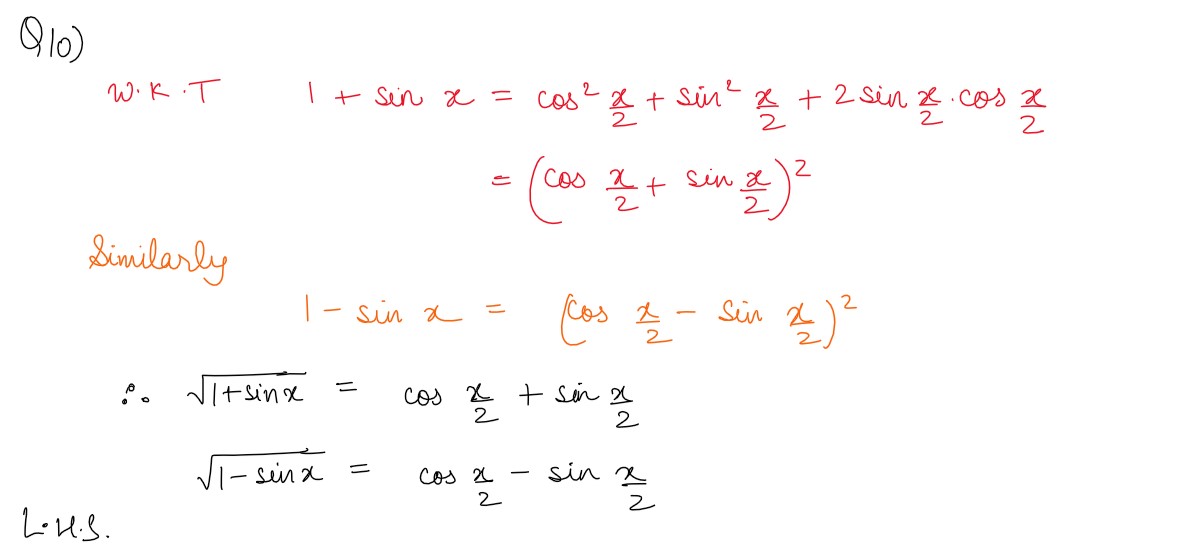 Q10)
W.K.T 1 + sin x = cos² x/2 + sin² x/2 + 2 sin x/2 . cos x/2
= (cos x/2 + sin x/2)²
Similarly
1 - sin x = (cos x/2 - sin x/2)²
∴ √(1+sinx) = cos x/2 + sin x/2
√(1-sinx) = cos x/2 - sin x/2
L.H.S.